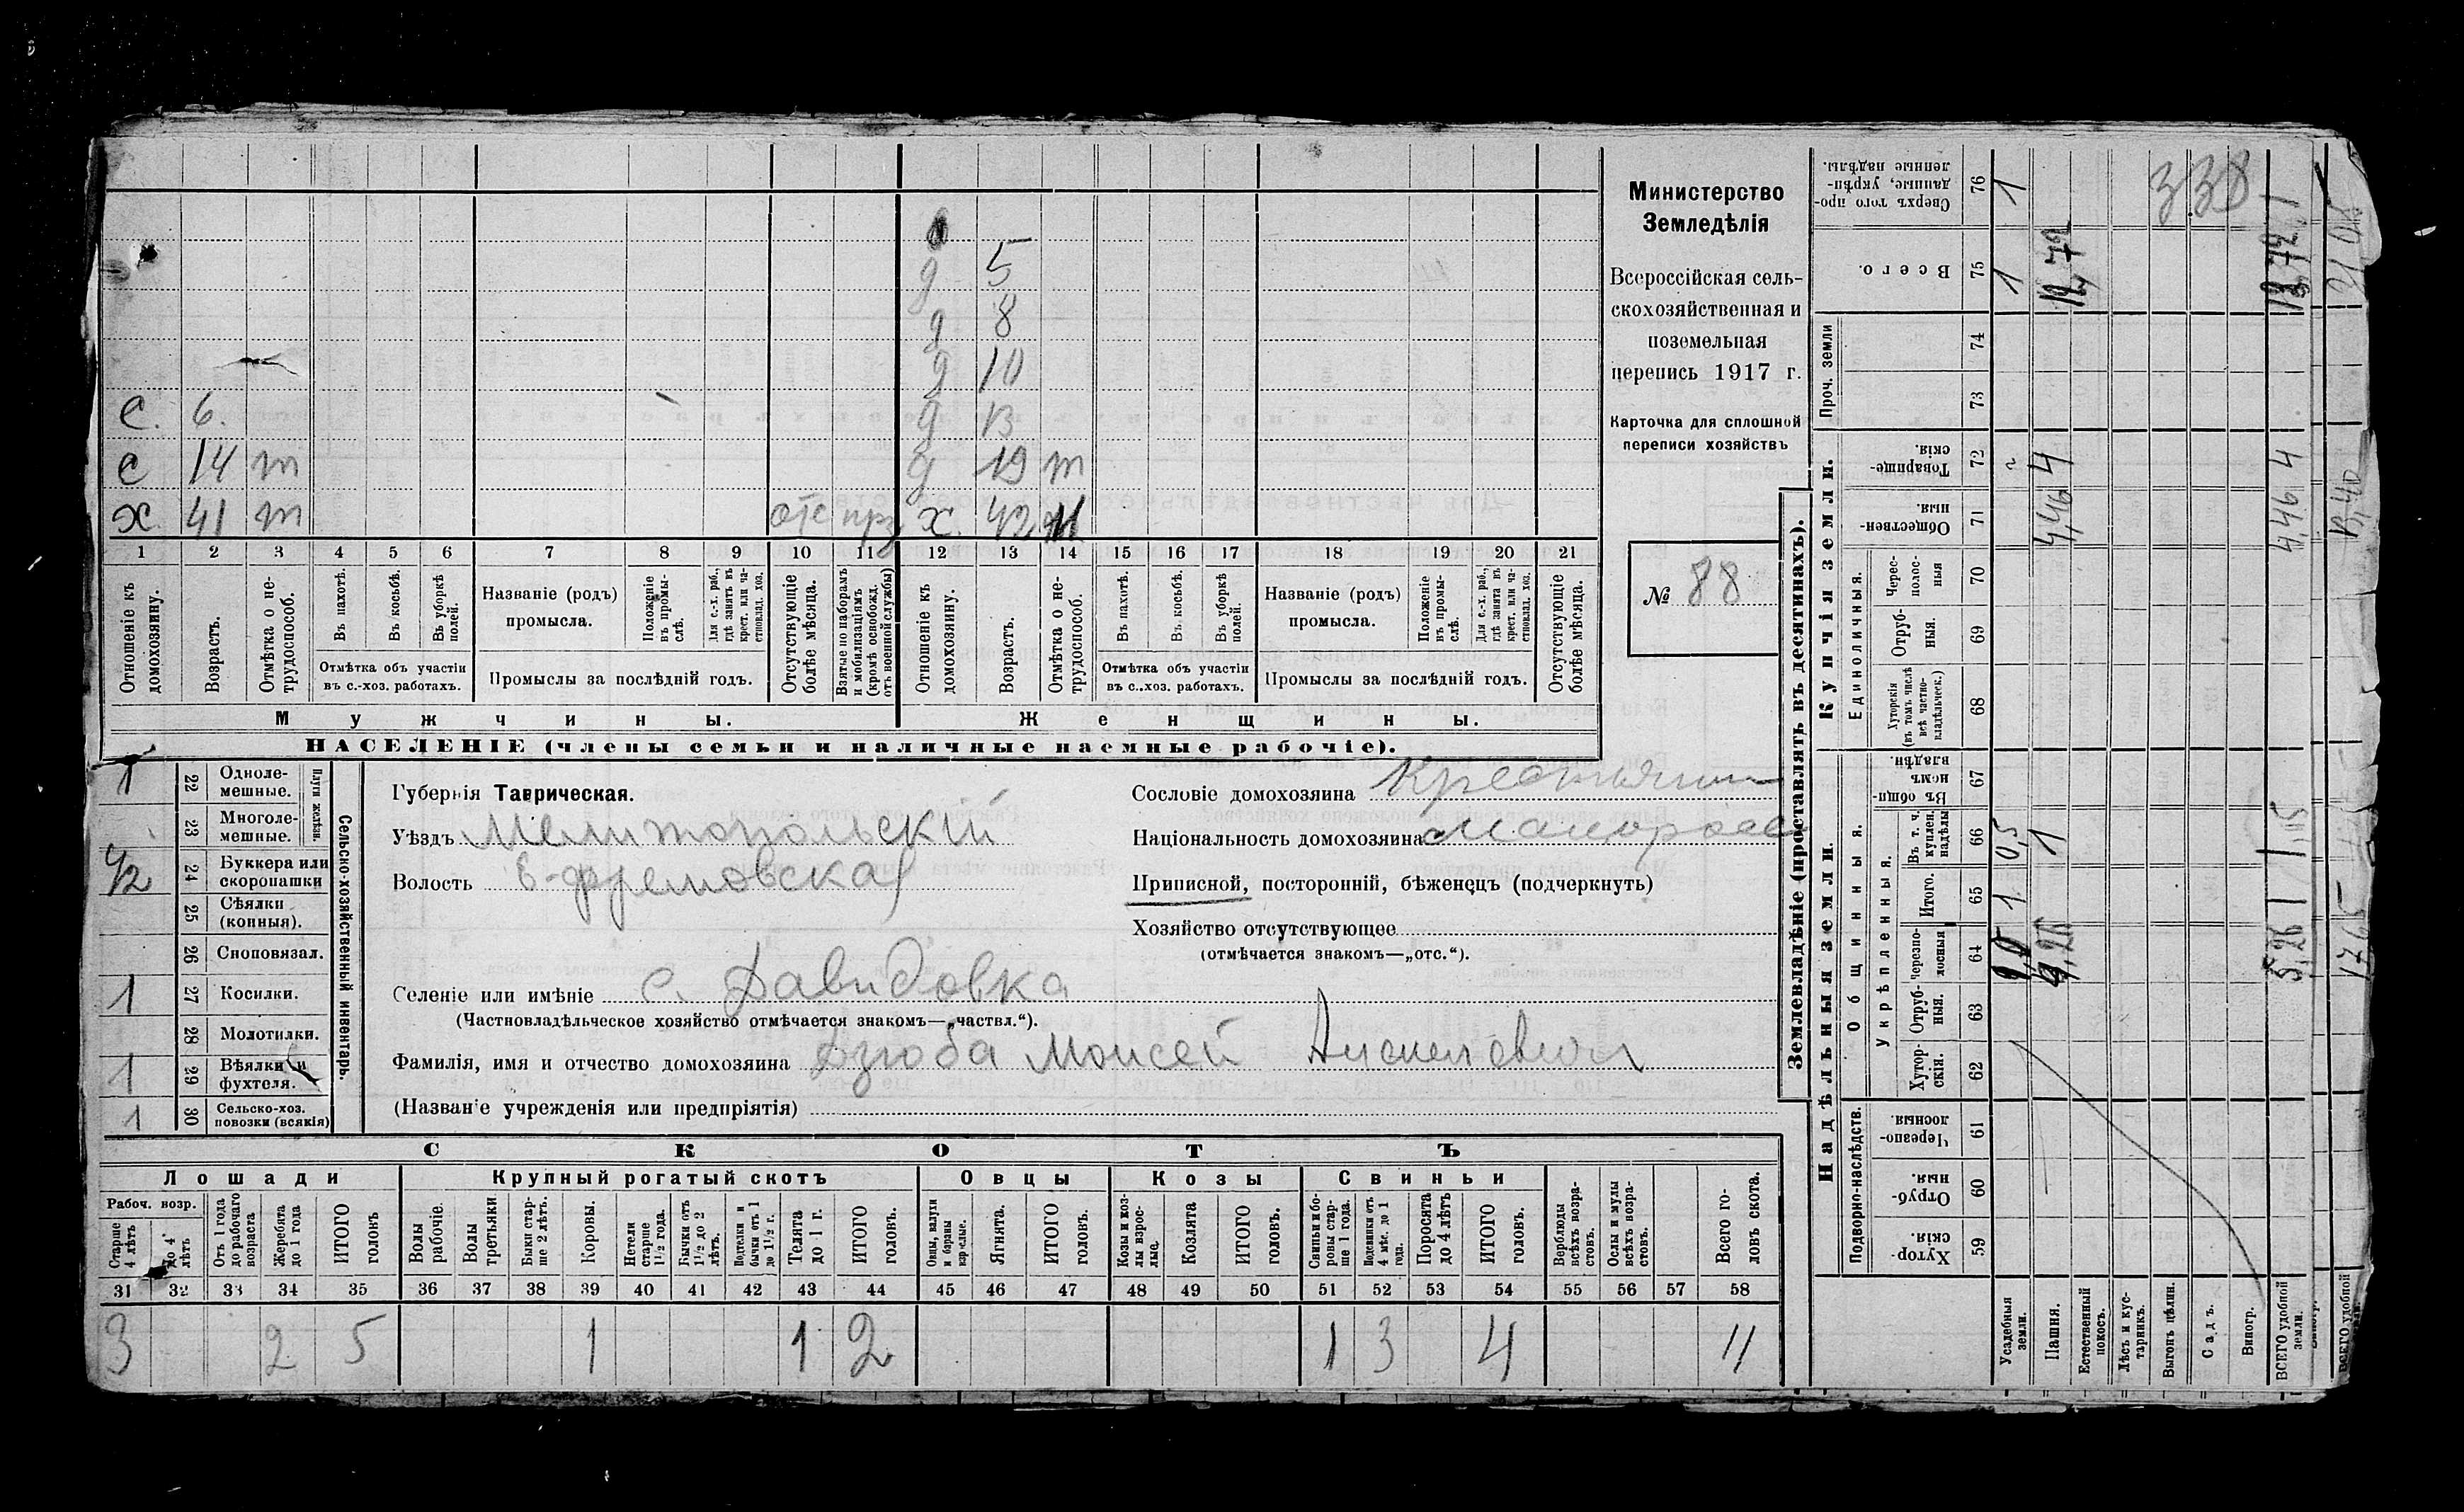 Министерство
Земледѣлія
Всероссійская сель-
скохозяйственная и
поземельная
перепись 1917 г.
Карточка для сплошной
переписи хозяйствъ
№ 88
д 5
д 8
д 10
С. 6. д 13
С 14 т д 19 т
Х 41 т отс прз Х. 42
1 2 3 4 5 6 7 8 9 10 11 12 13 14 15 16 17 18 19 20 21
Отношеніе къ домохозяину.
Возрастъ.
Отмѣтка о не-трудоспособ.
Въ пахотѣ.
Въ косьбѣ.
Въ уборкѣ полей.
Отмѣтка объ участіи
въ с.-хоз. работахъ.
Названіе (родъ)
промысла.
Положеніе въ промы-слѣ.
Для с.-х. раб., гдѣ занятъ въ крест. или ча-стновлад. хоз.
Промыслы за послѣдній годъ.
Отсутствующіе болѣе мѣсяца.
Взятые по наборамъ и мобилизаціямъ (кромѣ освобожд. отъ военной службы)
Отношеніе къ домохозяину.
Возрастъ.
Отмѣтка о не-трудоспособ.
Въ пахотѣ.
Въ косьбѣ.
Въ уборкѣ полей.
Отмѣтка объ участіи
въ с.-хоз. работахъ.
Названіе (родъ)
промысла.
Положеніе въ промы-слѣ.
Для с.-х. раб., гдѣ занята въ крест. или ча-стновлад. хоз.
Промыслы за послѣдній годъ.
Отсутствующіе болѣе мѣсяца.
Мужчины. Женщины.
НАСЕЛЕНІЕ (члены семьи и наличные наемные рабочіе).
Сельско-хозяйственный инвентарь.
Плуги желѣзн.
1 22 Одноле-мешные.
23 Многоле-мешные.
1/2 24 Буккера или скоропашки
25 Сѣялки (конныя).
26 Сноповязал.
1 27 Косилки.
28 Молотилки.
1 29 Вѣялки и фухтеля.
1 30 Сельско-хоз. повозки (всякія)
Губернія Таврическая.
Уѣздъ Мелитопольскій
Волость Ефремовская
Сословіе домохозяина Крестьянин
Національность домохозяина Малоросс
Приписной, посторонній, бѣженецъ (подчеркнуть)
Хозяйство отсутствующее
(отмѣчается знакомъ—„отс.“).
Селеніе или имѣніе с. Давидовка
(Частновладѣльческое хозяйство отмѣчается знакомъ—„частвл.“).
Фамилія, имя и отчество домохозяина Дзюба Моисей
(Названіе учрежденія или предпріятія)
СКОТЪ
Лошади Крупный рогатый скотъ Овцы Козы Свиньи
Рабоч. возр.
Старше 4 лѣтъ
до 4 лѣтъ
Отъ 1 года до рабочаго возраста
Жеребята до 1 года
ИТОГО головъ
Волы рабочіе.
Волы третьяки
Быки стар-ше 2 лѣтъ.
Коровы.
Нетели старше 1 1/2 года.
Бычки отъ 1 1/2 до 2 лѣтъ.
Подтелки и бычки отъ 1 до 1 1/2 г.
Телята до 1 г.
ИТОГО головъ.
Овцы, валухи и бараны взрослые.
Ягнята.
ИТОГО головъ.
Козы и коз-лы взрос-лые.
Козлята
ИТОГО головъ.
Свиньи и бо-ровы стар-ше 1 года.
Подсвинки отъ 4 мѣс. до 1 года.
Поросята до 4 лѣтъ
ИТОГО головъ.
Верблюды всѣхъ возра-стовъ.
Ослы и мулы всѣхъ возра-стовъ.
Всего го-ловъ скота.
31 32 33 34 35 36 37 38 39 40 41 42 43 44 45 46 47 48 49 50 51 52 53 54 55 56 57 58
3 2 5 1 1 2 1 3 4 11
Землевладѣніе (проставлять въ десятинахъ).
Надѣльныя земли. Купчія земли.
Подворно-наслѣдств.
Общинныя.
Укрѣпленныя.
Единоличныя.
Проч. земли
Хутор-скія. 59
Отруб-ныя. 60
Черезпо-лосныя 61
Хутор-скія. 62
Отруб-ныя. 63
Черезпо-лосныя 64
Итого. 65
Въ т. ч. куплен. надѣлы 66
Въ общи-номъ владѣн. 67
Хуторскія (въ томъ числѣ всѣ частно-владѣльческ.) 68
Отруб-ныя. 69
Черес-полос-ныя 70
Обществен-ныя. 71
Товарище-скія 72
73
74
Всего. 75
Сверхъ того про-данные, укрѣп-ленные надѣлы. 76
Усадебныя земли. 1 0,5 1 1
Пашня. 1 4,46 4
Естественный покосъ.
Лѣсъ и кус-тарникъ.
Выгонъ цѣлин. 338
Садъ.
Виногр.
ВСЕГО удобной земли. 4,46 4
ВСЕГО удобной